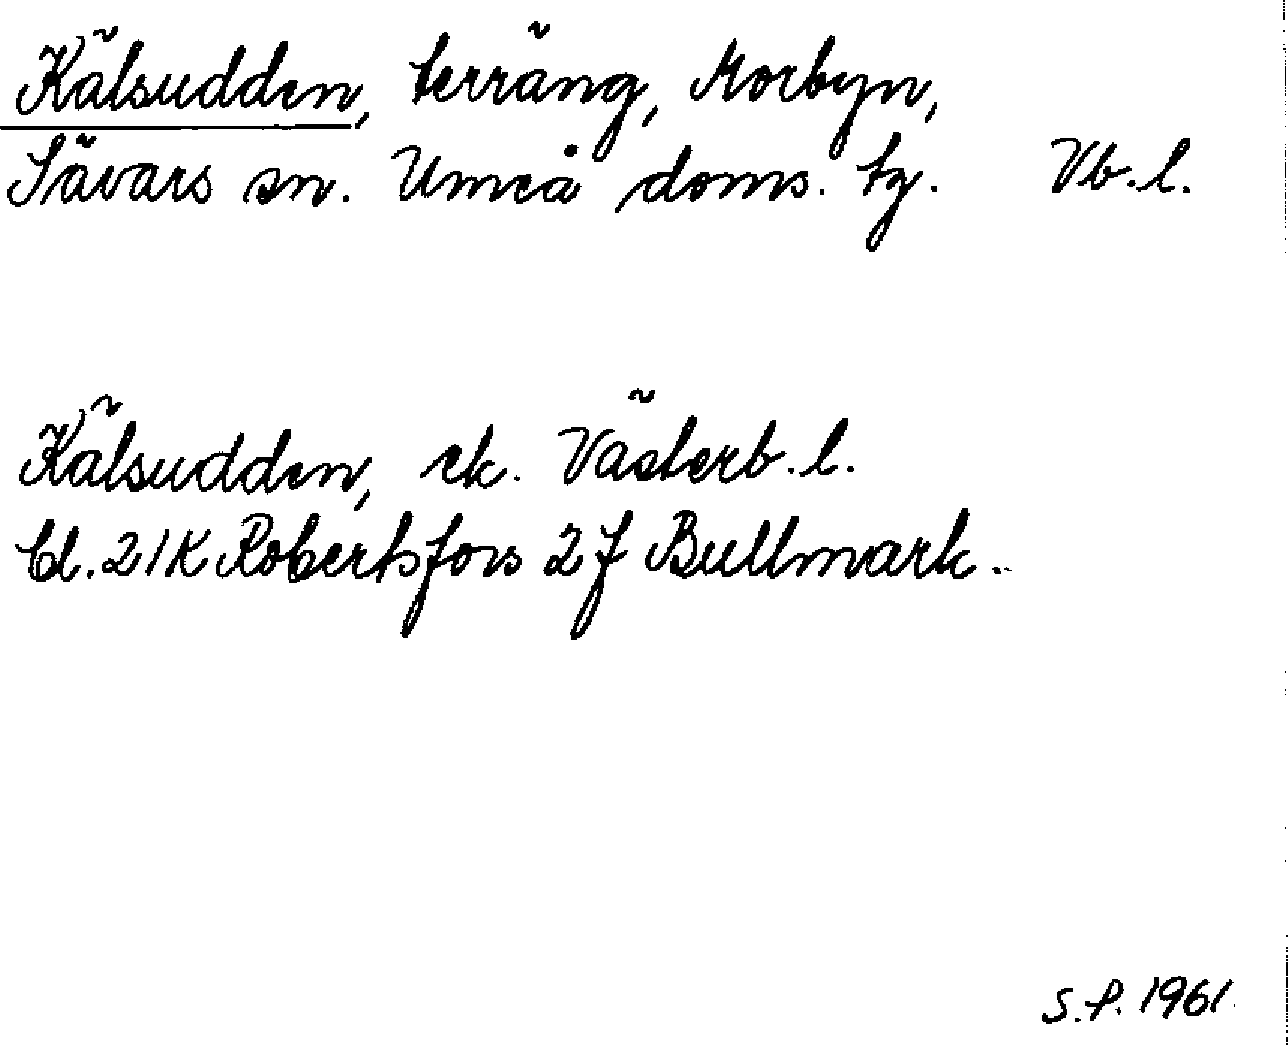 Kälsudden, terräng, Morbyn,
Sävars sn. Umeå doms. tg. Vb.l.
Kälsudden, ek. Västerb.l.
bl. 21K Robertsfors 2f Bullmark.
S.P. 1961.